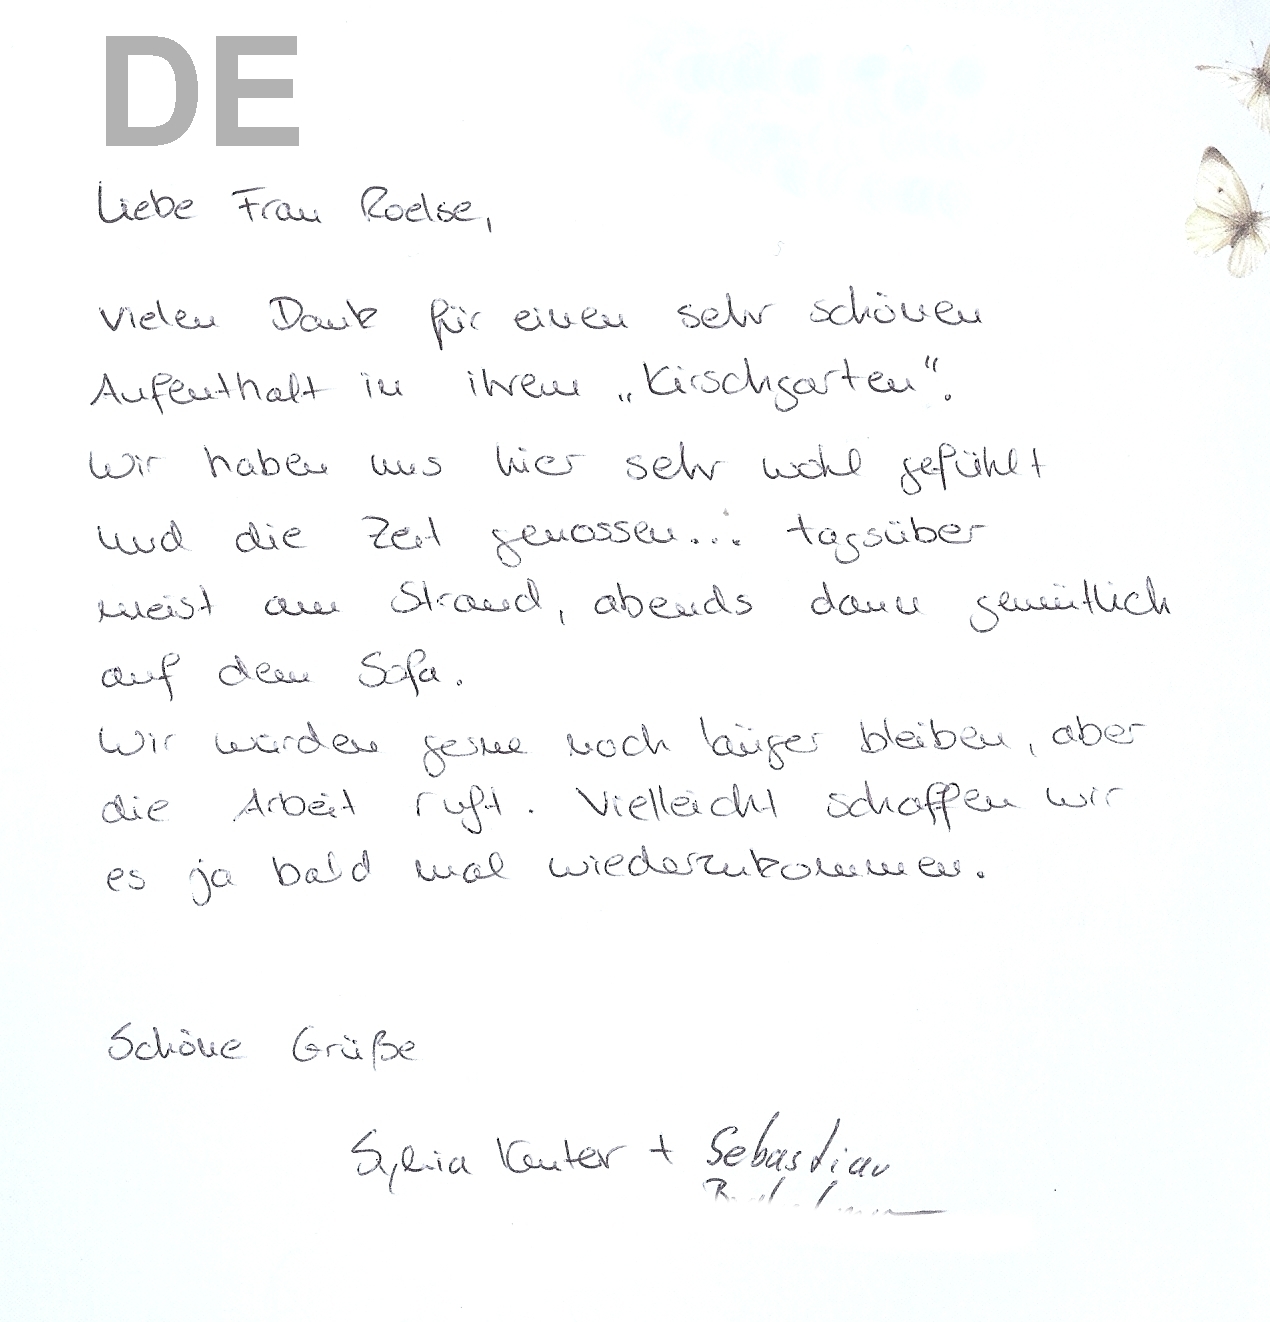 DE
Liebe Frau Roelse,
vielen Dank für einen sehr schönen
Aufenthalt in ihrem „Kirschgarten“.
Wir haben uns hier sehr wohl gefühlt
und die Zeit genossen... tagsüber
meist am Strand, abends dann gemütlich
auf dem Sofa.
Wir würden gerne noch länger bleiben, aber
die Arbeit ruft. Vielleicht schaffen wir
es ja bald mal wiederzukommen.
Schöne Grüße
Sylvia Kenter + Sebastian